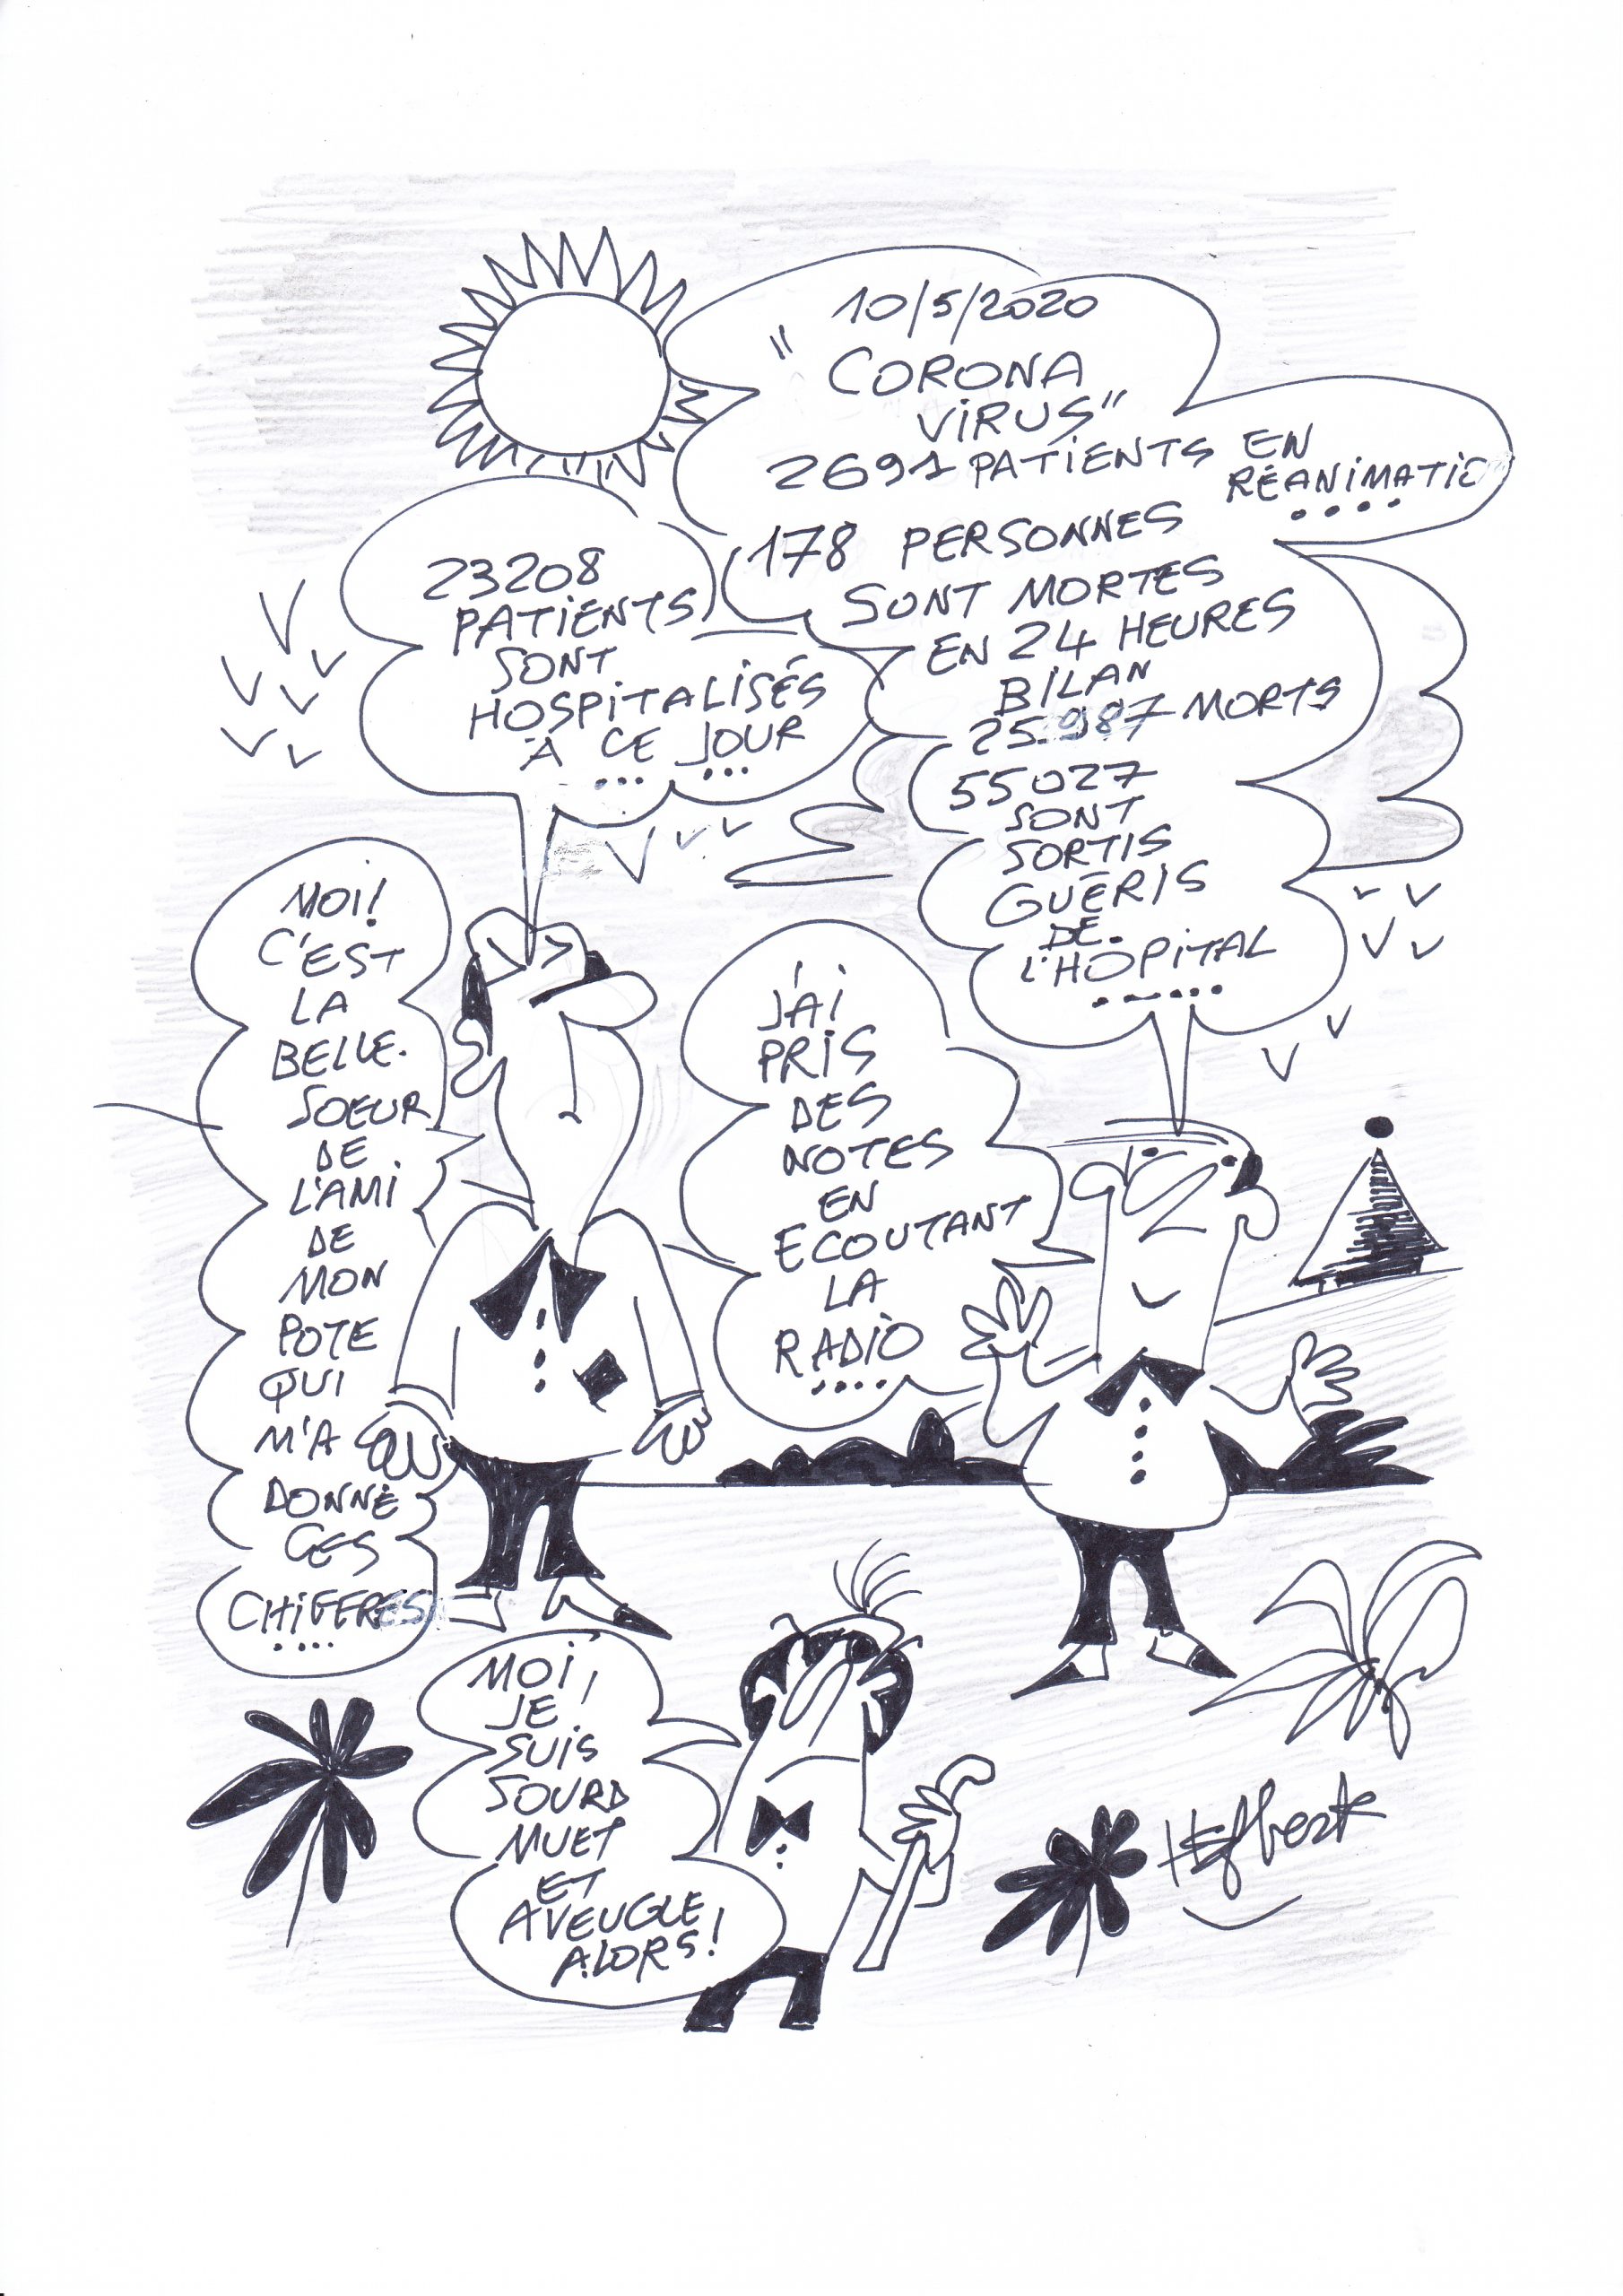 10/5/2020
"CORONA
VIRUS"
2691 PATIENTS EN
RÉANIMATIO
....
178 PERSONNES
SONT MORTES
EN 24 HEURES
BILAN
25.987 MORTS
55027
SONT
SORTIS
GUÉRIS
DE
L'HÔPITAL
......
23208
PATIENTS
SONT
HOSPITALISÉS
À CE JOUR
... ...
MOI!
C'EST
LA
BELLE-
SOEUR
DE
L'AMI
DE
MON
POTE
QUI
M'A
DONNÉ
CES
CHIFFRES
....
J'AI
PRIS
DES
NOTES
EN
ECOUTANT
LA
RADIO
....
MOI,
JE
SUIS
SOURD
MUET
ET
AVEUGLE
ALORS!